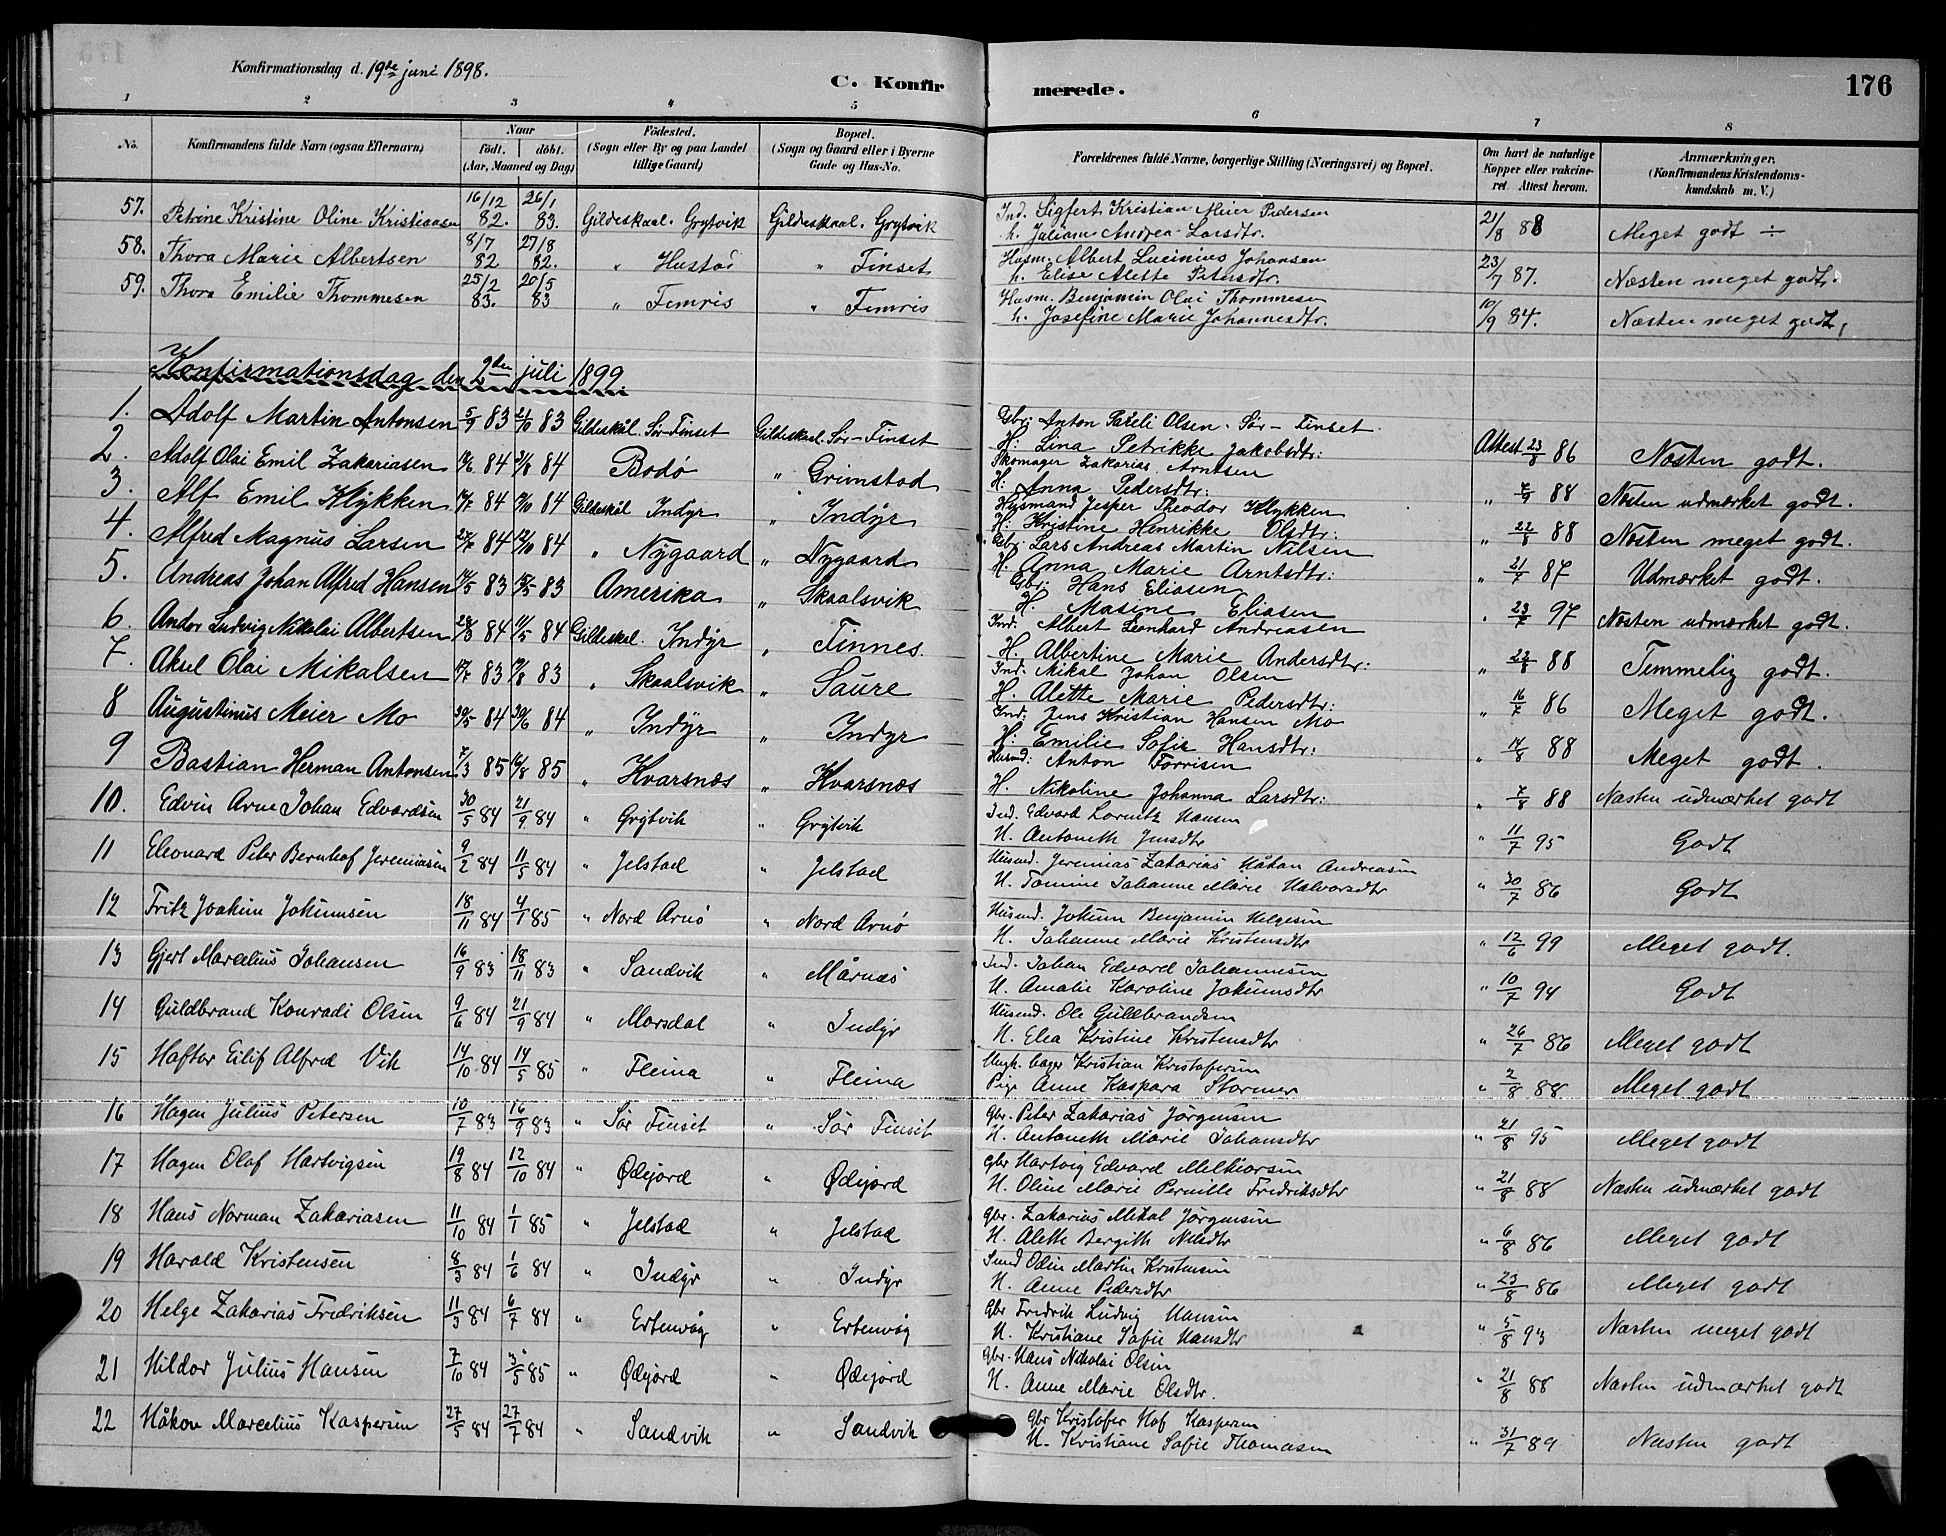 Konfirmationsdag d. 19de juni 1898.
C. Konfirmerede.
176
1 2 3 4 5 6 7 8
No. | Konfirmandens fulde Navn (ogsaa Efternavn) | Naar født. døbt. (Aar, Maaned og Dag) | Fødested. (Sogn eller By og paa Landet tillige Gaard) | Bopæl. (Sogn og Gaard eller i Byerne Gade og Hus-No. | Forældrenes fulde Navne, borgerlige Stilling (Næringsvei) og Bopæl. | Om havt de naturlige Kopper eller vakcineret. Attest herom. | Anmærkninger. (Konfirmandens Kristendomskundskab m. V.)
57. Petrine Kristine Oline Kristiansen 16/12 82. 26/1 83. Gildeskaal. Grytvik Gildeskaal. Grytvik Ind. Sigfert Kristian Meier Pedersen h. Juliane Andrea Larsdtr. 21/8 88 Meget godt ÷
58. Thora Marie Albertsen 8/7 82 27/8 82. " Hustad " Finset Husm. Albert Lucinius Johansen h. Elise Alette Petersdtr. 23/7 87. Næsten meget godt.
59. Thora Emilie Thommesen 25/2 83. 20/5 83 " Femris " Femris Husm. Benjamin Olai Thommesen h. Josefine Marie Johannesdtr. 10/9 84. Næsten meget godt,
Konfirmationsdag den 2den juli 1899.
1. Adolf Martin Antonsen 5/9 83 21/10 83 Gildeskål. Sør-Finset Gildeskaal. Sør-Finset Gbr. Anton Pareli Olsen. Sør-Finset. H: Lina Petrikke Jakobsdtr: Attest 23/8 86 Næsten godt.
2. Adolf Olai Emil Zakariasen 14/6 84 31/8 84 Bodø " Grimstad Skomager Zakarias Arntsen H: Anna Pedersdtr: " 7/9 88 Næsten udmærket godt.
3. Alf Emil Klykken 17/7 84 19/10 84 Gildeskål Indyr " Indyr Husmand Jesper Theodor Klykken H: Kristine Henrikke Olsdtr: " 22/8 88 Næsten meget godt.
4. Alfred Magnus Larsen 27/7 84 12/10 84 " Nygaard " Nygaard Gbr: Lars Andreas Martin Nilsen H: Anna Marie Arntsdtr: " 21/7 87 Udmærket godt.
5. Andreas Johan Alfred Hansen 14/5 83 15/5 83 Amerika " Skaalsvik Gbr: Hans Eliasen H. Masine Eliasen " 23/7 97 Næsten udmærket godt.
6. Andor Ludvig Nikolai Albertsen 28/3 84 11/5 84 Gildeskal. Indyr " Finnes. Ind: Albert Leonhard Andreasen H. Albertine Marie Andersdtr: " 22/8 88 Temmelig godt.
7. Aksel Olai Mikalsen 17/7 83 19/8 83 " Skaalsvik " Saure Ind. Mikal Johan Olsen H. Alette Marie Pedersdtr: " 16/7 86 Meget godt.
8 Augustinus Meier Mo 30/5 84 30/6 84 " Indyr " Indyr Ind: Jens Kristian Hansen Mo H: Emilie Sofie Hansdtr: " 14/8 88 Meget godt.
9 Bastian Herman Antonsen 7/3 85 16/8 85 " Kvarsnæs " Kvarsnæs Husmd: Anton Torrisen H. Nikoline Johanna Larsdtr: " 7/8 88 Næsten udmærket godt
10. Edvin Arne Johan Edvardsen 30/5 84 21/9 84 " Grytvik " Grytvik Ind. Edvard Lorentz Hansen H. Antoneth Jensdtr " 11/7 95 Godt
11 Eleonard Peter Bernhof Jeremiasen 9/2 84 11/5 84 " Jelstad " Jelstad Husmd. Jeremias Zakarias Håkon Andreasen H. Tomine Johanne Marie Halvorsdtr " 30/7 86 Godt
12 Fritz Joakim Jokumsen 18/11 84 4/1 85 " Nord Arnø " Nord Arnø Husmd. Jokum Benjamin Helgesen H. Johanne Marie Kristensdtr " 12/6 99 Meget godt.
13 Gjert Marcelius Johansen 16/9 83 18/11 83 " Sandvik " Mårnæs Ind. Johan Edvard Johannesen H. Amalie Karoline Jokumsdtr " 10/7 94 Godt
14 Guldbrand Konradi Olsen 9/6 84 21/9 84 " Morsdal " Indyr Husmd. Ole Guldbrandsen H. Elea Kristine Kristensdtr " 26/7 86 Meget godt
15 Haftor Eilif Alfred Vik 14/10 84 14/5 85 " Fleina " Fleina Ungk. Kristian Kristofersen Pige Anne Kaspara Stormer " 2/8 88 Meget godt
16 Hagen Julius Petersen 10/7 83 16/9 83 " Sør Finset " Sør Finset Gbr. Peter Zakarias Jørgensen H. Antoneth Marie Johansdtr " 21/8 95 Meget godt
17 Hagen Olaf Hartvigsen 19/8 84 12/10 84 " Ødejord " Ødejord Gbr Hartvig Edvard Melkiorsen H. Oline Marie Pernille Fredriksdtr " 21/8 88 Næsten udmærket godt
18 Hans Norman Zakariasen 11/10 84 1/1 85 " Jelstad " Jelstad Gbr. Zakarias Mikal Jørgensen H. Aleth Bergith Nilsdtr " 6/8 86 Meget godt
19 Harald Kristensen 8/3 84 1/6 84 " Indyr " Indyr Odin Martin Kristensen H. Anne Pedersdtr " 23/8 86 Meget godt
20 Helge Zakarias Fredriksen 11/3 84 6/7 84 " Ertenvåg " Ertenvåg Gbr Fredrik Ludvig Hansen H. Kristiane Sofie Hansdtr " 5/8 93 Næsten meget godt
21 Hildor Julius Hansen 7/10 84 3/5 85 " Ødejord " Ødejord Gbr. Hans Nikolai Olsen H. Anne Marie Olsdtr. " 21/8 88 Næsten udmærket godt
22 Håkon Marcelius Kaspersen 27/5 84 27/7 84 " Sandvik " Sandvik Gbr Kristofer Hof Kaspersen H. Kristiane Sofie Thomasen " 31/7 89 Næsten godt